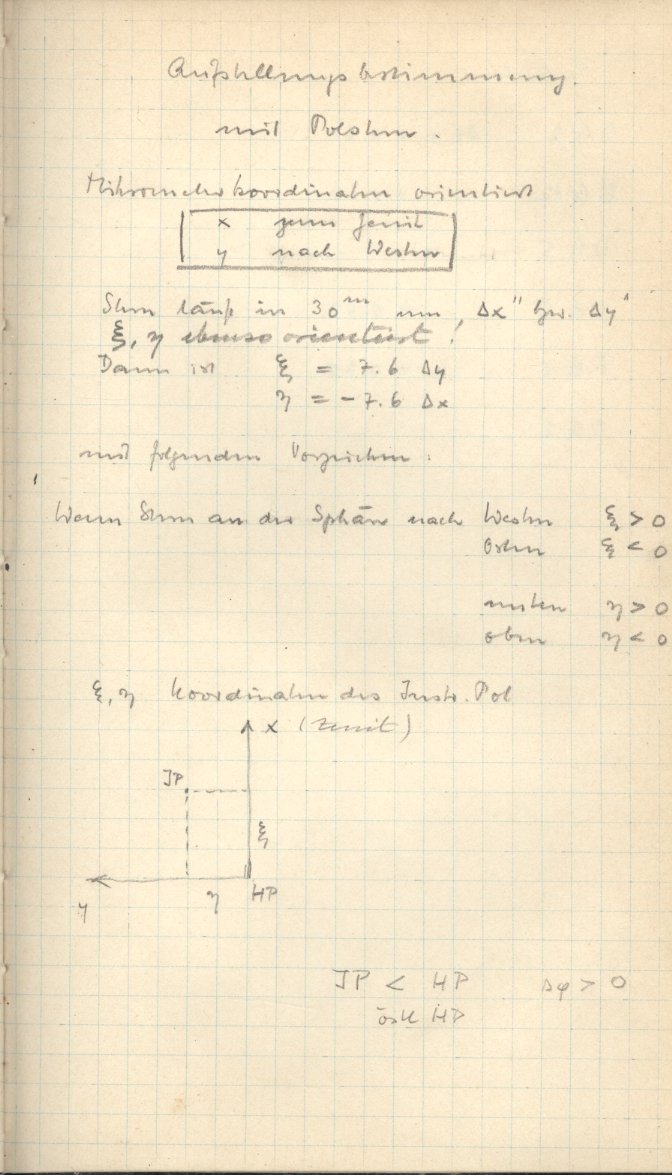 Aufstellungsbestimmung
mit Polstern.
Mikrometerkoordinaten orientiert
x zum Zenit
y nach Westen
Stern läuft in 30ᵐ um Δx" bzw. Δy"
ξ, η ebenso orientiert!
Dann ist ξ = 7.6 Δy
η = - 7.6 Δx
mit folgenden Vorzeichen:
Wenn Stern an der Sphäre nach Westen ξ > 0
Osten ξ < 0
unten η > 0
oben η < 0
ξ, η Koordinaten des Instr. Pol
x (Zenit)
JP
ξ
y η HP
JP < HP Δφ > 0
östl HP